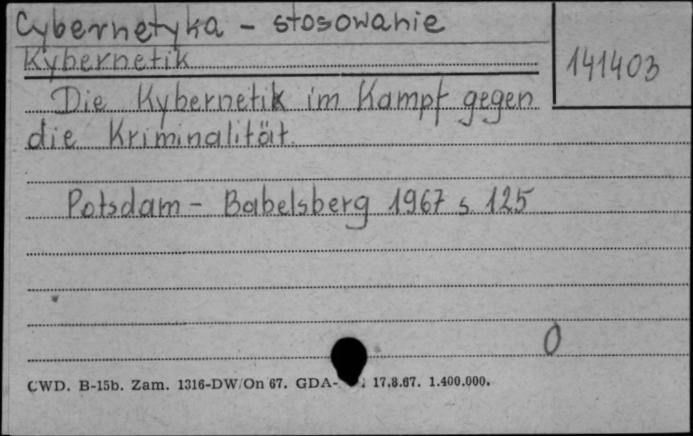 Cybernetyka - stosowanie
Kybernetik
141403
Die Kybernetik im Kampf gegen
die Kriminalität.
Potsdam - Babelsberg 1967 s. 125
0
CWD. B-15b. Zam. 1316-DW/On 67. GDA- 17.8.67. 1.400.000.